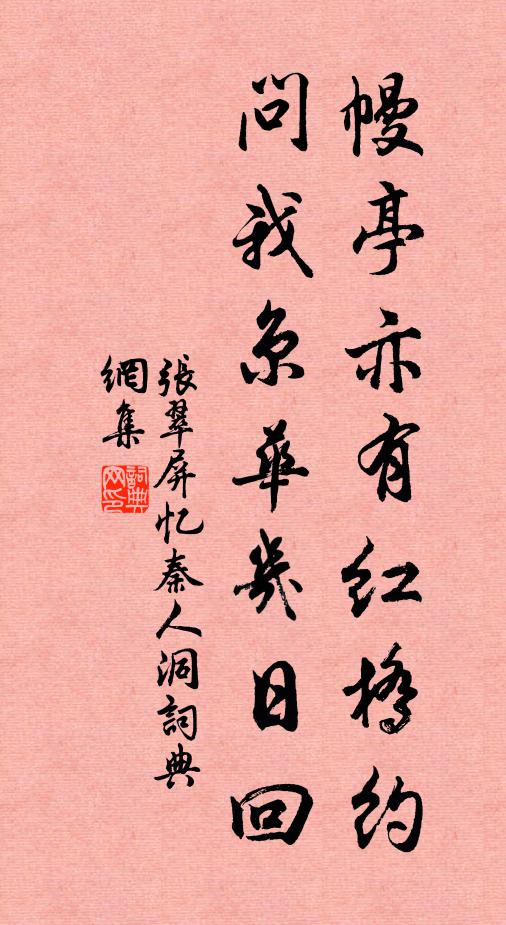 幔亭亦有红橋约
問我京華幾日回
張翠屏忆秦人洞詞典
網集
詞典網印